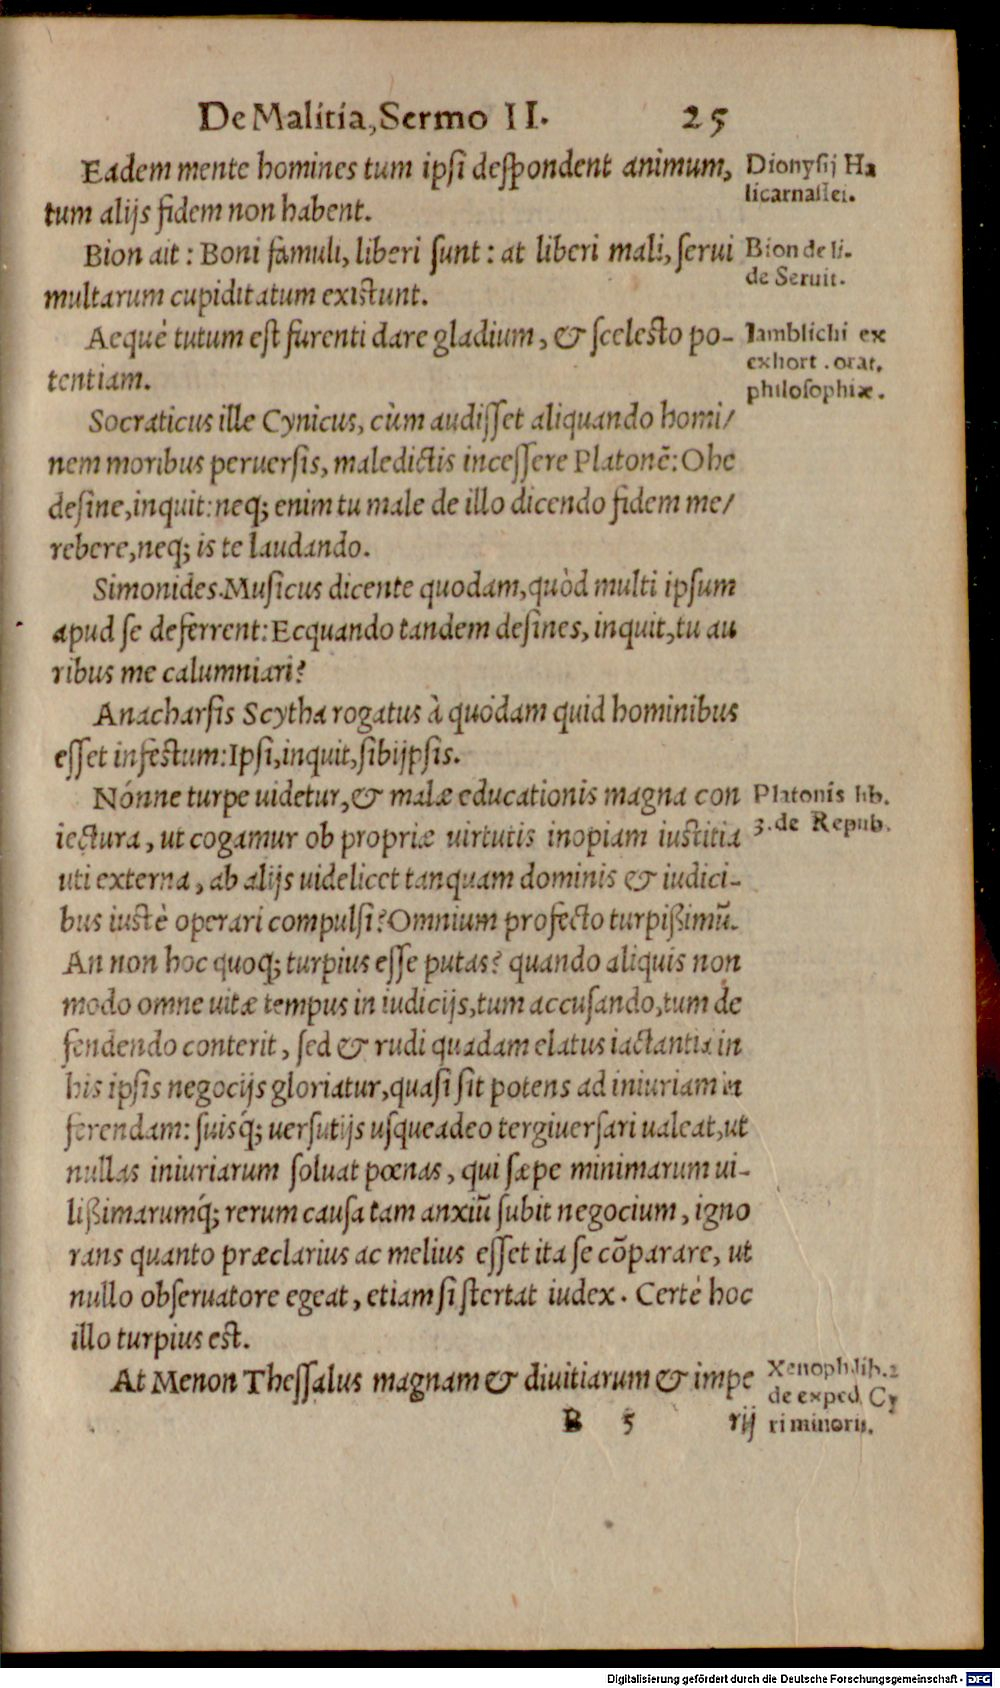 De Malitia, Sermo II. 25
Eadem mente homines tum ipsi despondent animum,
tum alijs fidem non habent.
Dionysij Ha
licarnassei.
Bion ait: Boni famuli, liberi sunt: at liberi mali, serui
multarum cupiditatum existunt.
Bion de li.
de Seruit.
Aequè tutum est furenti dare gladium, & scelesto po-
tentiam.
Iamblichi ex
exhort. orat.
philosophiæ.
Socraticus ille Cynicus, cùm audisset aliquando homi/
nem moribus peruersis, maledictis incessere Platonē: Ohe
desine, inquit: neq; enim tu male de illo dicendo fidem me/
rebere, neq; is te laudando.
Simonides Musicus dicente quodam, quòd multi ipsum
apud se deferrent: Ecquando tandem desines, inquit, tu au
ribus me calumniari?
Anacharsis Scytha rogatus à quòdam quid hominibus
esset infestum: Ipsi, inquit, sibijpsis.
Nónne turpe uidetur, & malæ educationis magna con
iectura, ut cogamur ob propriæ uirtutis inopiam iustitia
uti externa, ab alijs uidelicet tanquam dominis & iudici-
bus iustè operari compulsi? Omnium profecto turpißimū.
An non hoc quoq; turpius esse putas? quando aliquis non
modo omne uitæ tempus in iudicijs, tum accusando, tum de
fendendo conterit, sed & rudi quadam elatus iactantia in
his ipsis negocijs gloriatur, quasi sit potens ad iniuriam in
ferendam: suisq́; uersutijs usqueadeo tergiuersari ualeat, ut
nullas iniuriarum soluat pœnas, qui sæpe minimarum ui-
lißimarumq́; rerum causa tam anxiū subit negocium, igno
rans quanto præclarius ac melius esset ita se cōparare, ut
nullo obseruatore egeat, etiam si stertat iudex. Certè hoc
illo turpius est.
Platonis lib.
3. de Repub.
At Menon Thessalus magnam & diuitiarum & impe
Xenoph. lib. 2
de exped. Cy
ri minoris.
B 5 rij
Digitalisierung gefördert durch die Deutsche Forschungsgemeinschaft - DFG